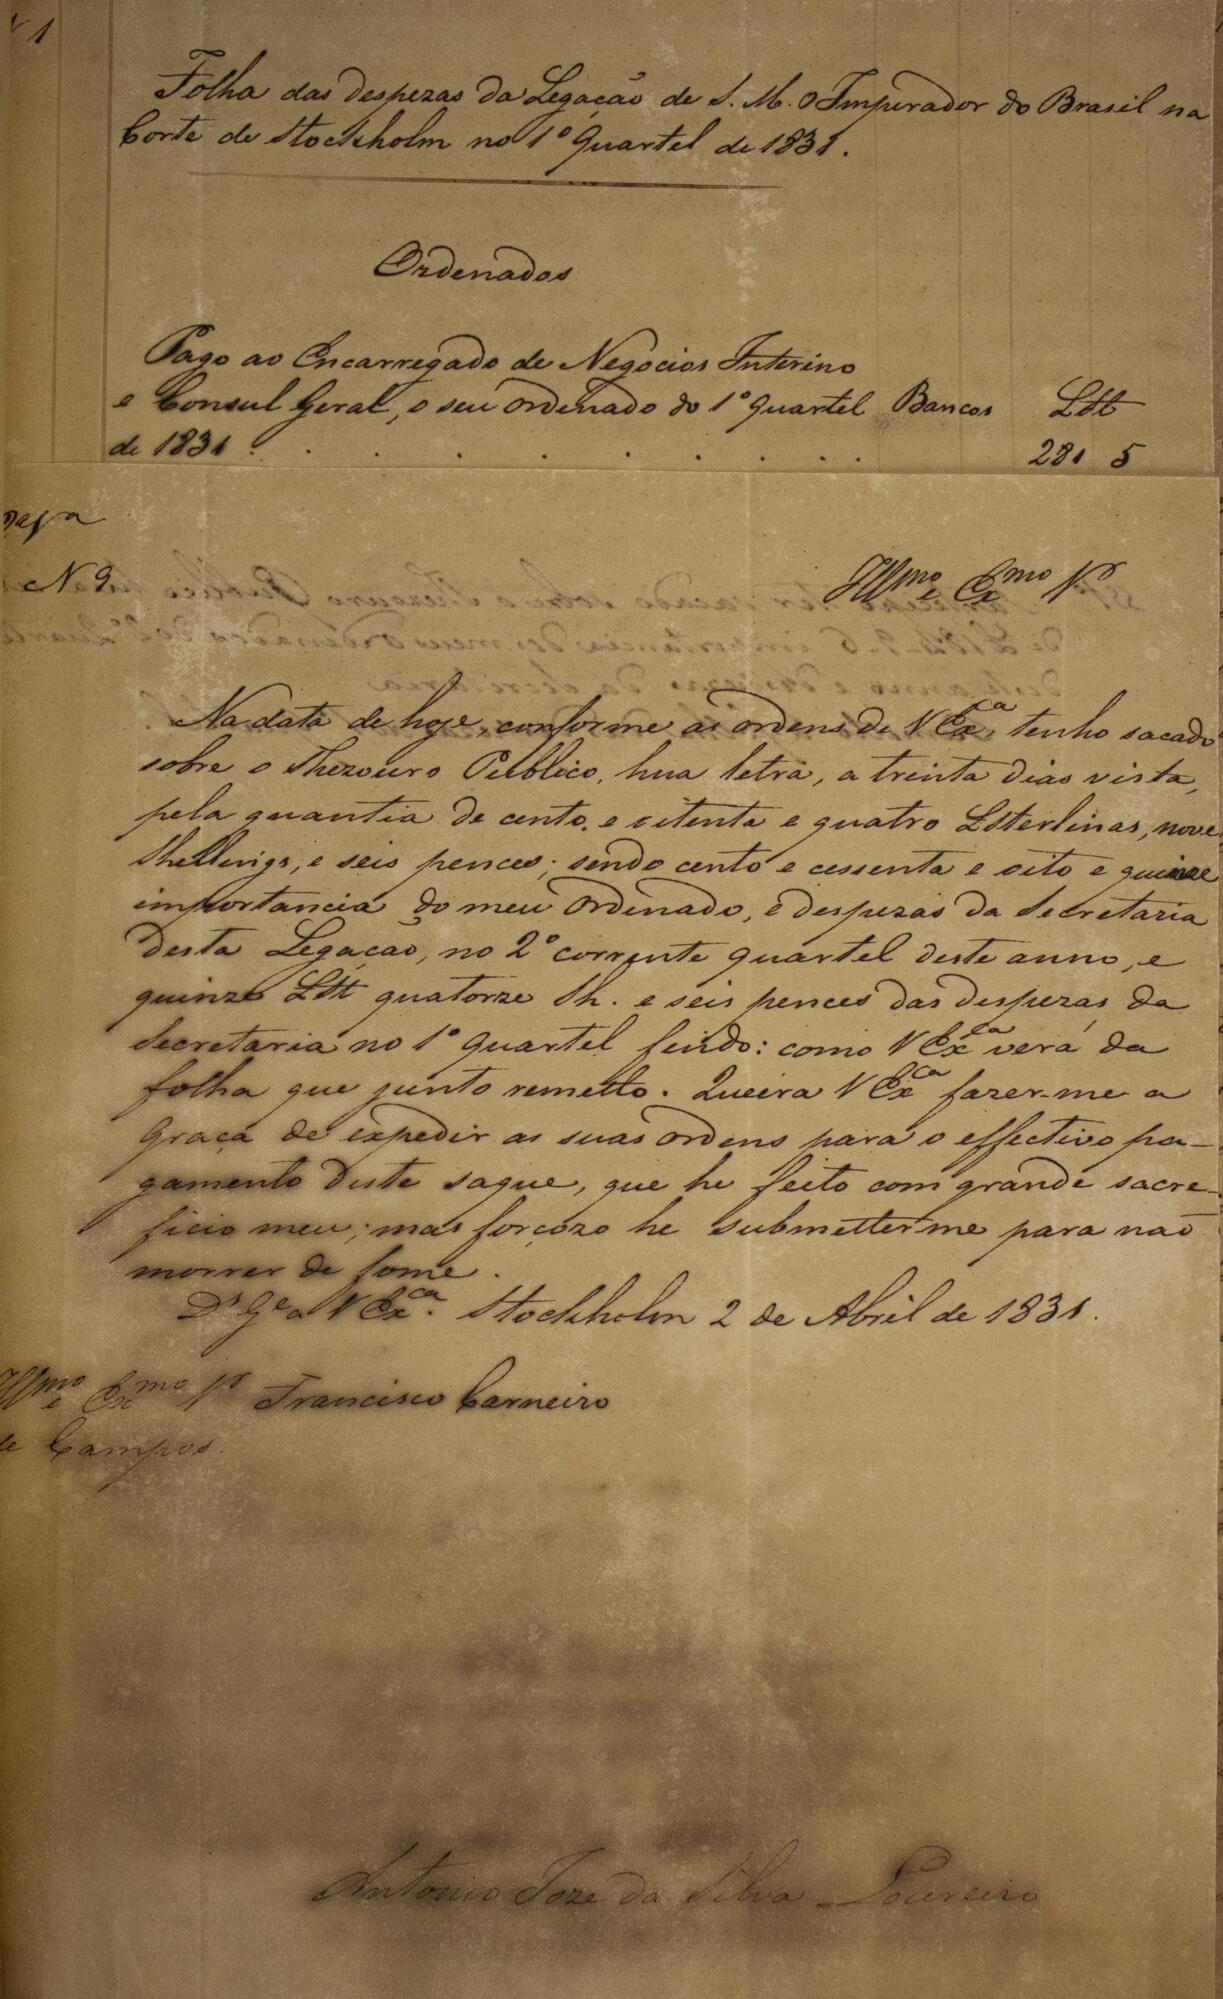 N 1
Folha das despezas da Legação de S. M. o Imperador do Brasil na
Corte de Stockholm no 1º quartel de 1831.
Ordenados
Pago ao Encarregado de Negocios Interino
e Consul Geral, o seu ordenado do 1º quartel Bancos LSt
de 1831 . . . . . . . . . 281 5
N 9
Illmo e Exmo Sr
Na data de hoje, conforme as ordens de V Exca, tenho sacado
sobre o Thezouro Publico, hua letra, a trinta dias vista,
pela quantia de cento e oitenta e quatro LSterlinas, nove
Shellings, e seis pences; sendo cento e cessenta e oito e quinze
importancia do meu Ordenado, e despezas da Secretaria
desta Legação, no 2º corrente quartel deste anno, e
quinze LSt quatorze Sh. e seis pences das despezas da
Secretaria no 1º quartel findo: como V Exca verá da
folha que junto remetto. Queira V Exca fazer-me a
Graça de expedir as suas ordens para o effectivo pa-
gamento deste saque, que he feito com grande sacre-
ficio meu; mas forçozo he submetter-me para não
morrer de fome.
Ds Ge a V Exca. Stockholm 2 de Abril de 1831.
Illmo e Exmo Sr Francisco Carneiro
de Campos.
Antonio Joze da Silva Loureiro